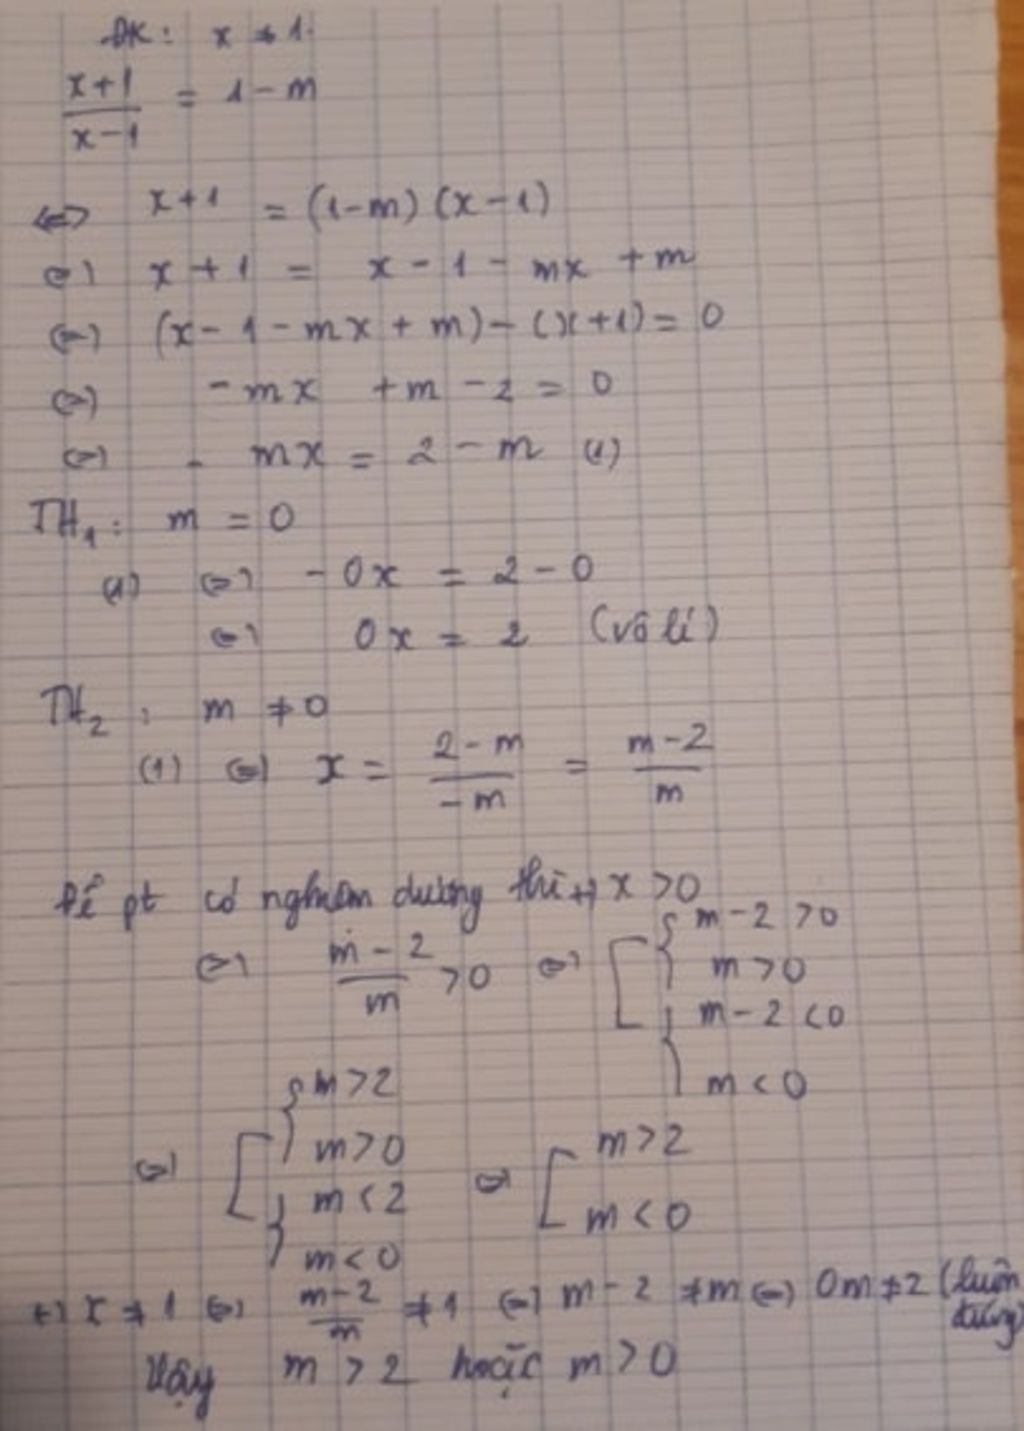 ĐK: x ≠ 1.
x+1/x-1 = 1-m
<=> x+1 = (1-m)(x-1)
<=> x+1 = x-1-mx+m
<=> (x-1-mx+m)-(x+1)=0
<=> -mx +m-2=0
<=> -mx = 2-m (1)
TH1: m=0
(1) <=> -0x = 2-0
<=> 0x = 2 (vô lí)
TH2: m ≠ 0
(1) <=> x = 2-m/-m = m-2/m
Để pt có nghiệm dương thì +) x>0
<=> m-2/m >0 <=> [ { m-2>0
m>0
{ m-2<0
m<0
<=> [ { m>2
m>0
{ m<2
m<0
<=> [ m>2
m<0
+) x ≠ 1 <=> m-2/m ≠ 1 <=> m-2 ≠ m <=> 0m ≠ 2 (luôn
đúng)
Vậy m>2 hoặc m>0